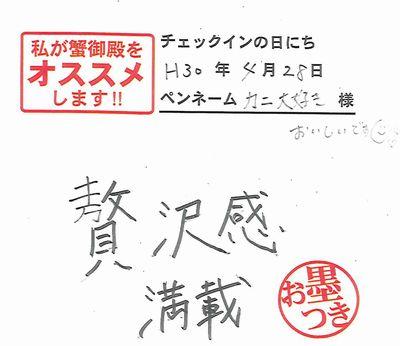 私が蟹御殿を
オススメ
します!!
チェックインの日にち
H30年4月28日
ペンネーム カニ大好き 様
おいしいです
贅沢感
満載
お墨つき